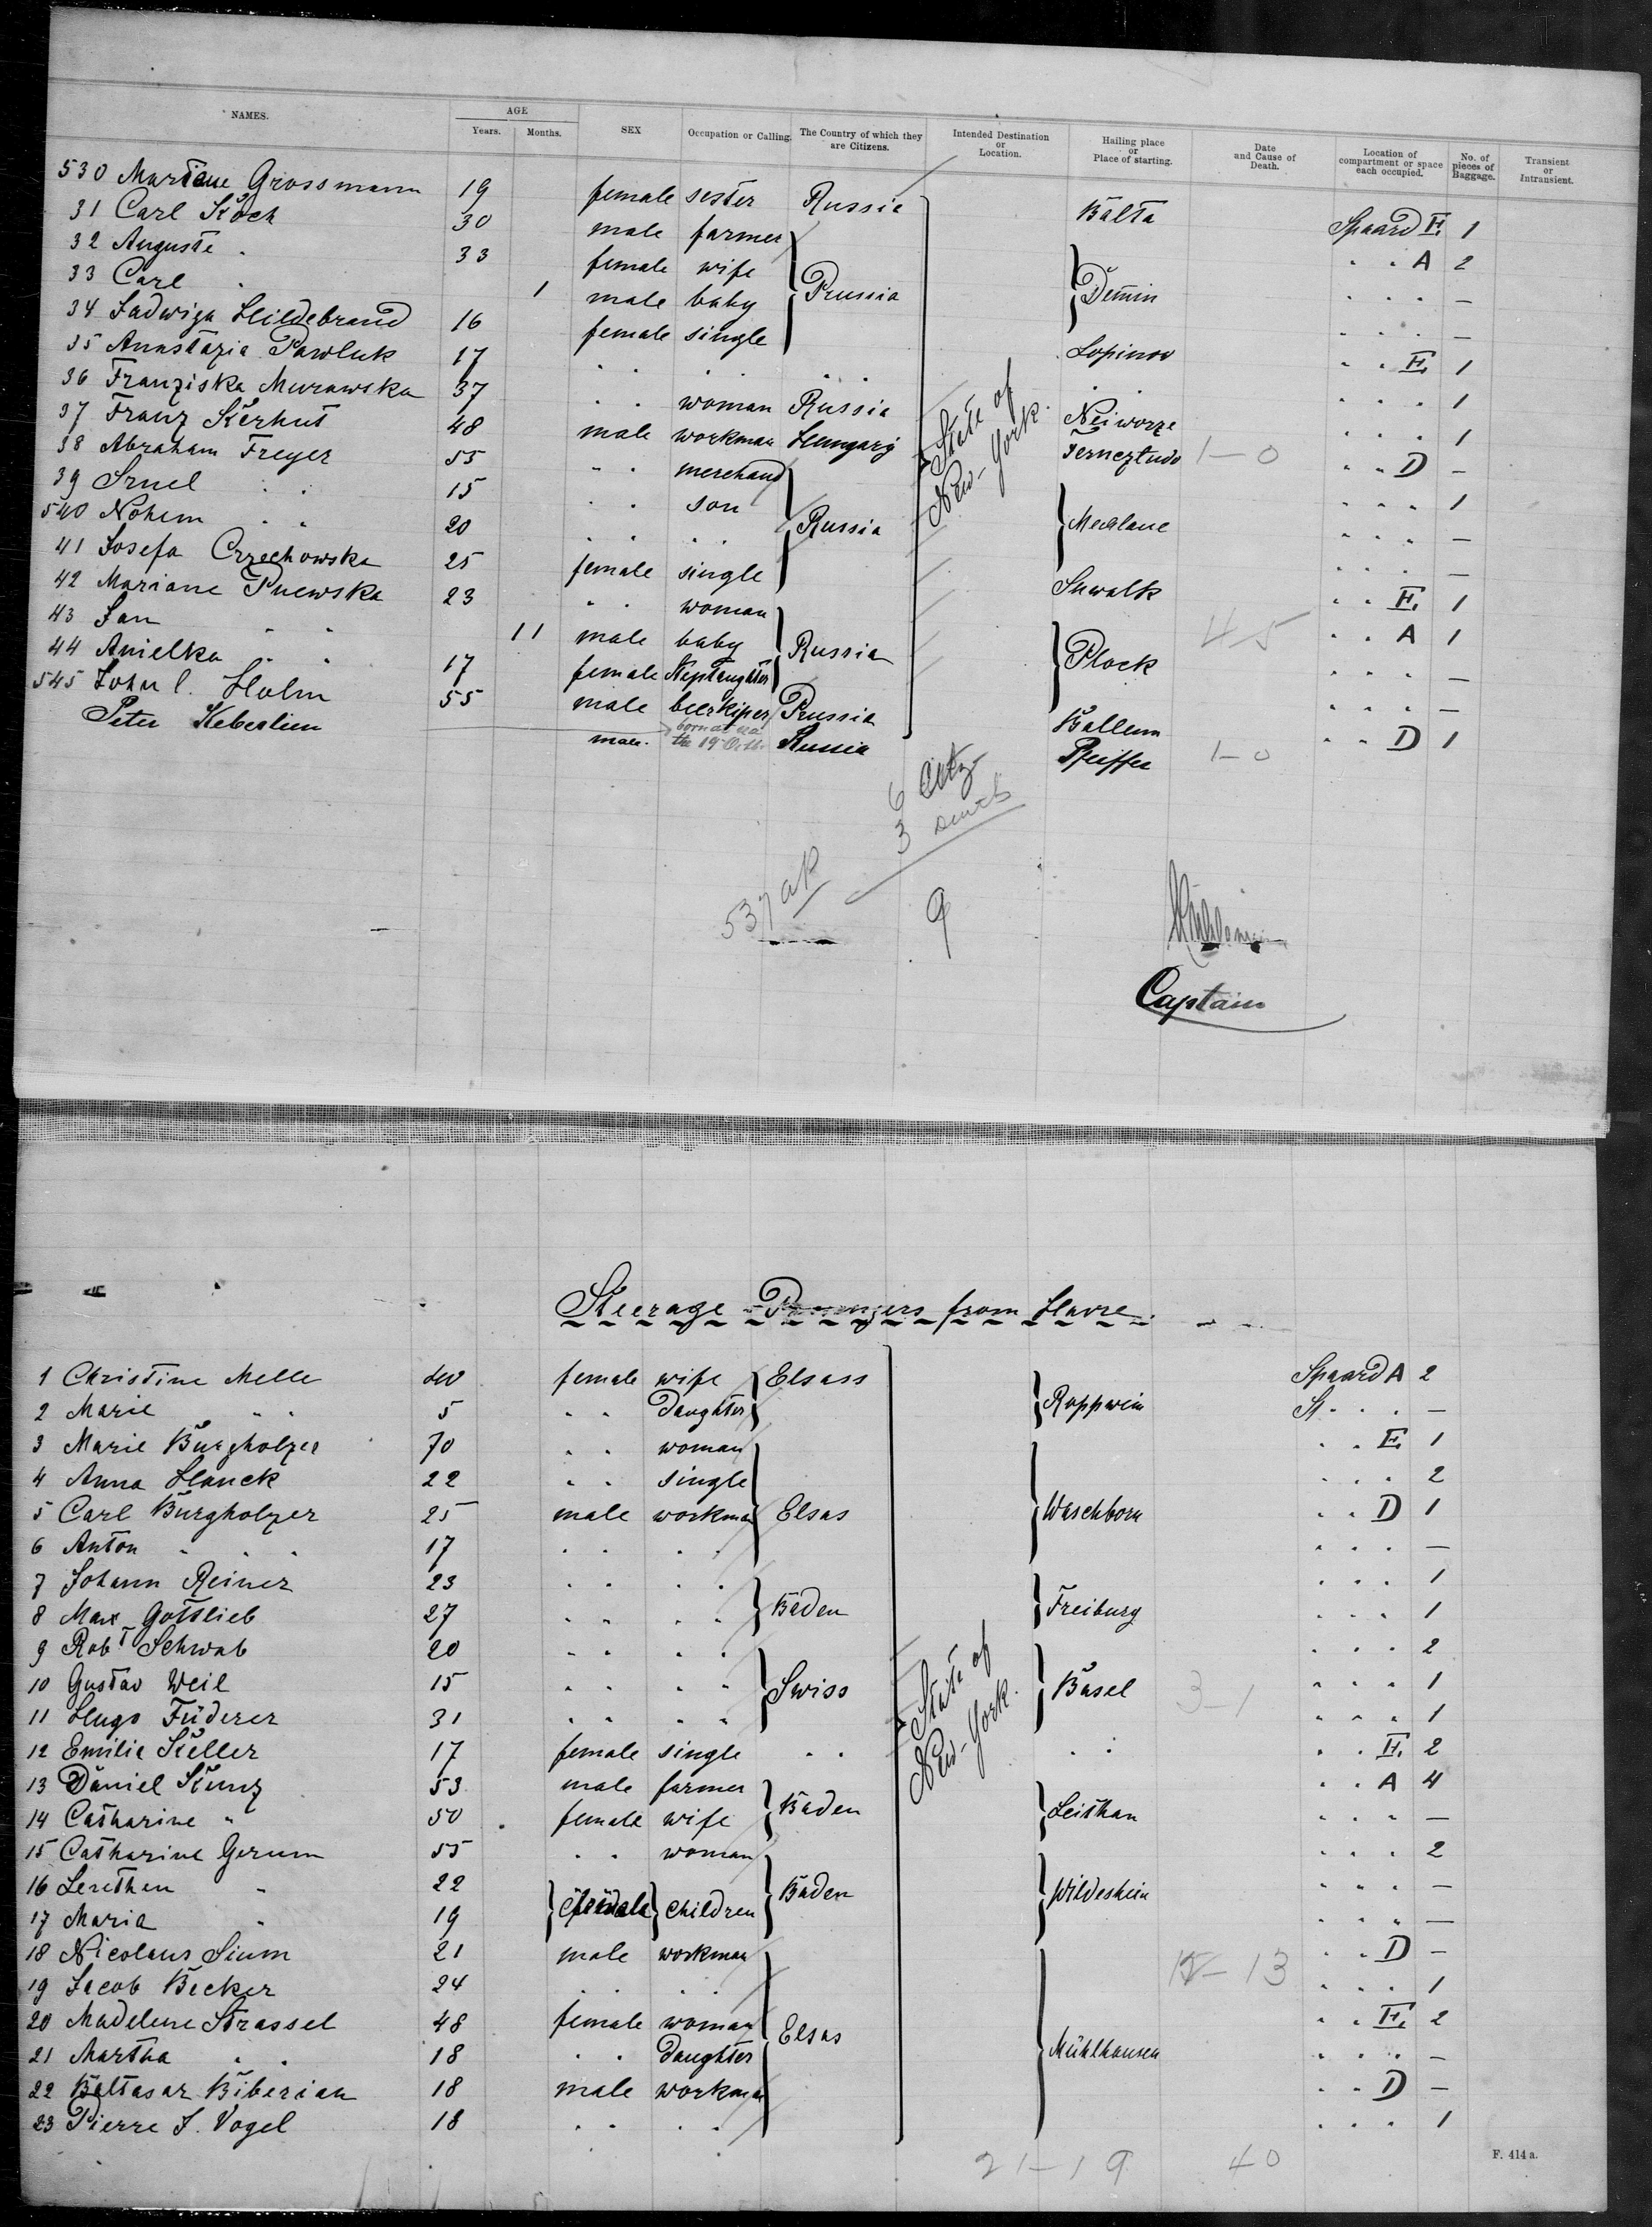 NAMES. AGE SEX Occupation or Calling. The Country of which they are Citizens. Intended Destination or Location. Hailing place or Place of starting. Date and Cause of Death. Location of compartment or space each occupied. No. of pieces of Baggage. Transient or Intransient.
Years. Months.
530 Mariane Grossmann 19 female sister Russia Balta Spaard F. 1
31 Carl Koch 30 male farmer Prussia Demin " " A 2
32 Auguste " 33 female wife " " " —
33 Carl " 1 male baby " " " —
34 Hadwiga Hildebrand 16 female single Lopinow " " F. 1
35 Anastazia Pawluk 17 " " " " " " " " " " 1
36 Franziska Murawska 37 " " woman Russia Neiworze " " " 1
37 Franz Kerhut 48 male workman Hungary Ferneztudo 1-0 " " D —
38 Abraham Freyer 55 " " merchand Russia Mechlane " " " 1
39 Sruel " " 15 " " son " " " —
540 Nohem " " 20 " " " " " " " —
41 Josefa Orzechowska 25 female single Suwalk " " F. 1
42 Mariane Pnewska 23 " " woman Russia Plock 45 " " A 1
43 Jan " " 11 male baby " " " —
44 Anielka " " 17 female stepdaughter " " " —
545 John C. Holm 55 male beerkiper Prussia Ballum " " D 1
Peter Keberlien male. born at sea the 19 Octb. Russia Pfeiffer 1-0
State of New-York.
6 Citz
3
9
537
Captain
Steerage Passengers from Havre.
1 Christine Melle female wife Elsass Roppwein Spaard A 2
2 Marie " " 5 " " daughter St " " " —
3 Marie Burgholzer 70 " " woman Elsas Waschborn " " F. 1
4 Anna Hanck 22 " " single " " " 2
5 Carl Burgholzer 25 male workman " " D 1
6 Anton " " " 17 " " " " " " " —
7 Johann Reiner 23 " " " " Baden Freiburg " " " 1
8 Max Gottslieb 27 " " " " " " " 1
9 Robt Schwab 20 " " " " Swiss Basel " " " 2
10 Gustav Weil 15 " " " " 3-1 " " " 1
11 Hugo Füderer 31 " " " " " " " 1
12 Emilie Keller 17 female single " " " " " " F. 2
13 Daniel Kunz 53 male farmer Baden Leithan " " A 4
14 Catharine " 50 female wife " " " —
15 Catharine Gerum 55 " " woman Baden Wildeshein " " " 2
16 Lenethen " 22 female children " " " —
17 Maria " 19 " " " —
18 Nicolaus Sium 21 male workman Elsas Mühlhausen 13 " " D —
19 Jacob Becker 24 " " " " " " " 1
20 Madelene Strassel 48 female woman " " F. 2
21 Martha " " 18 " " daughter " " " —
22 Baltasar Biberian 18 male workman " " D —
23 Pierre J. Vogel 18 " " " " " " " 1
State of New-York.
21-19 40
F. 414 a.